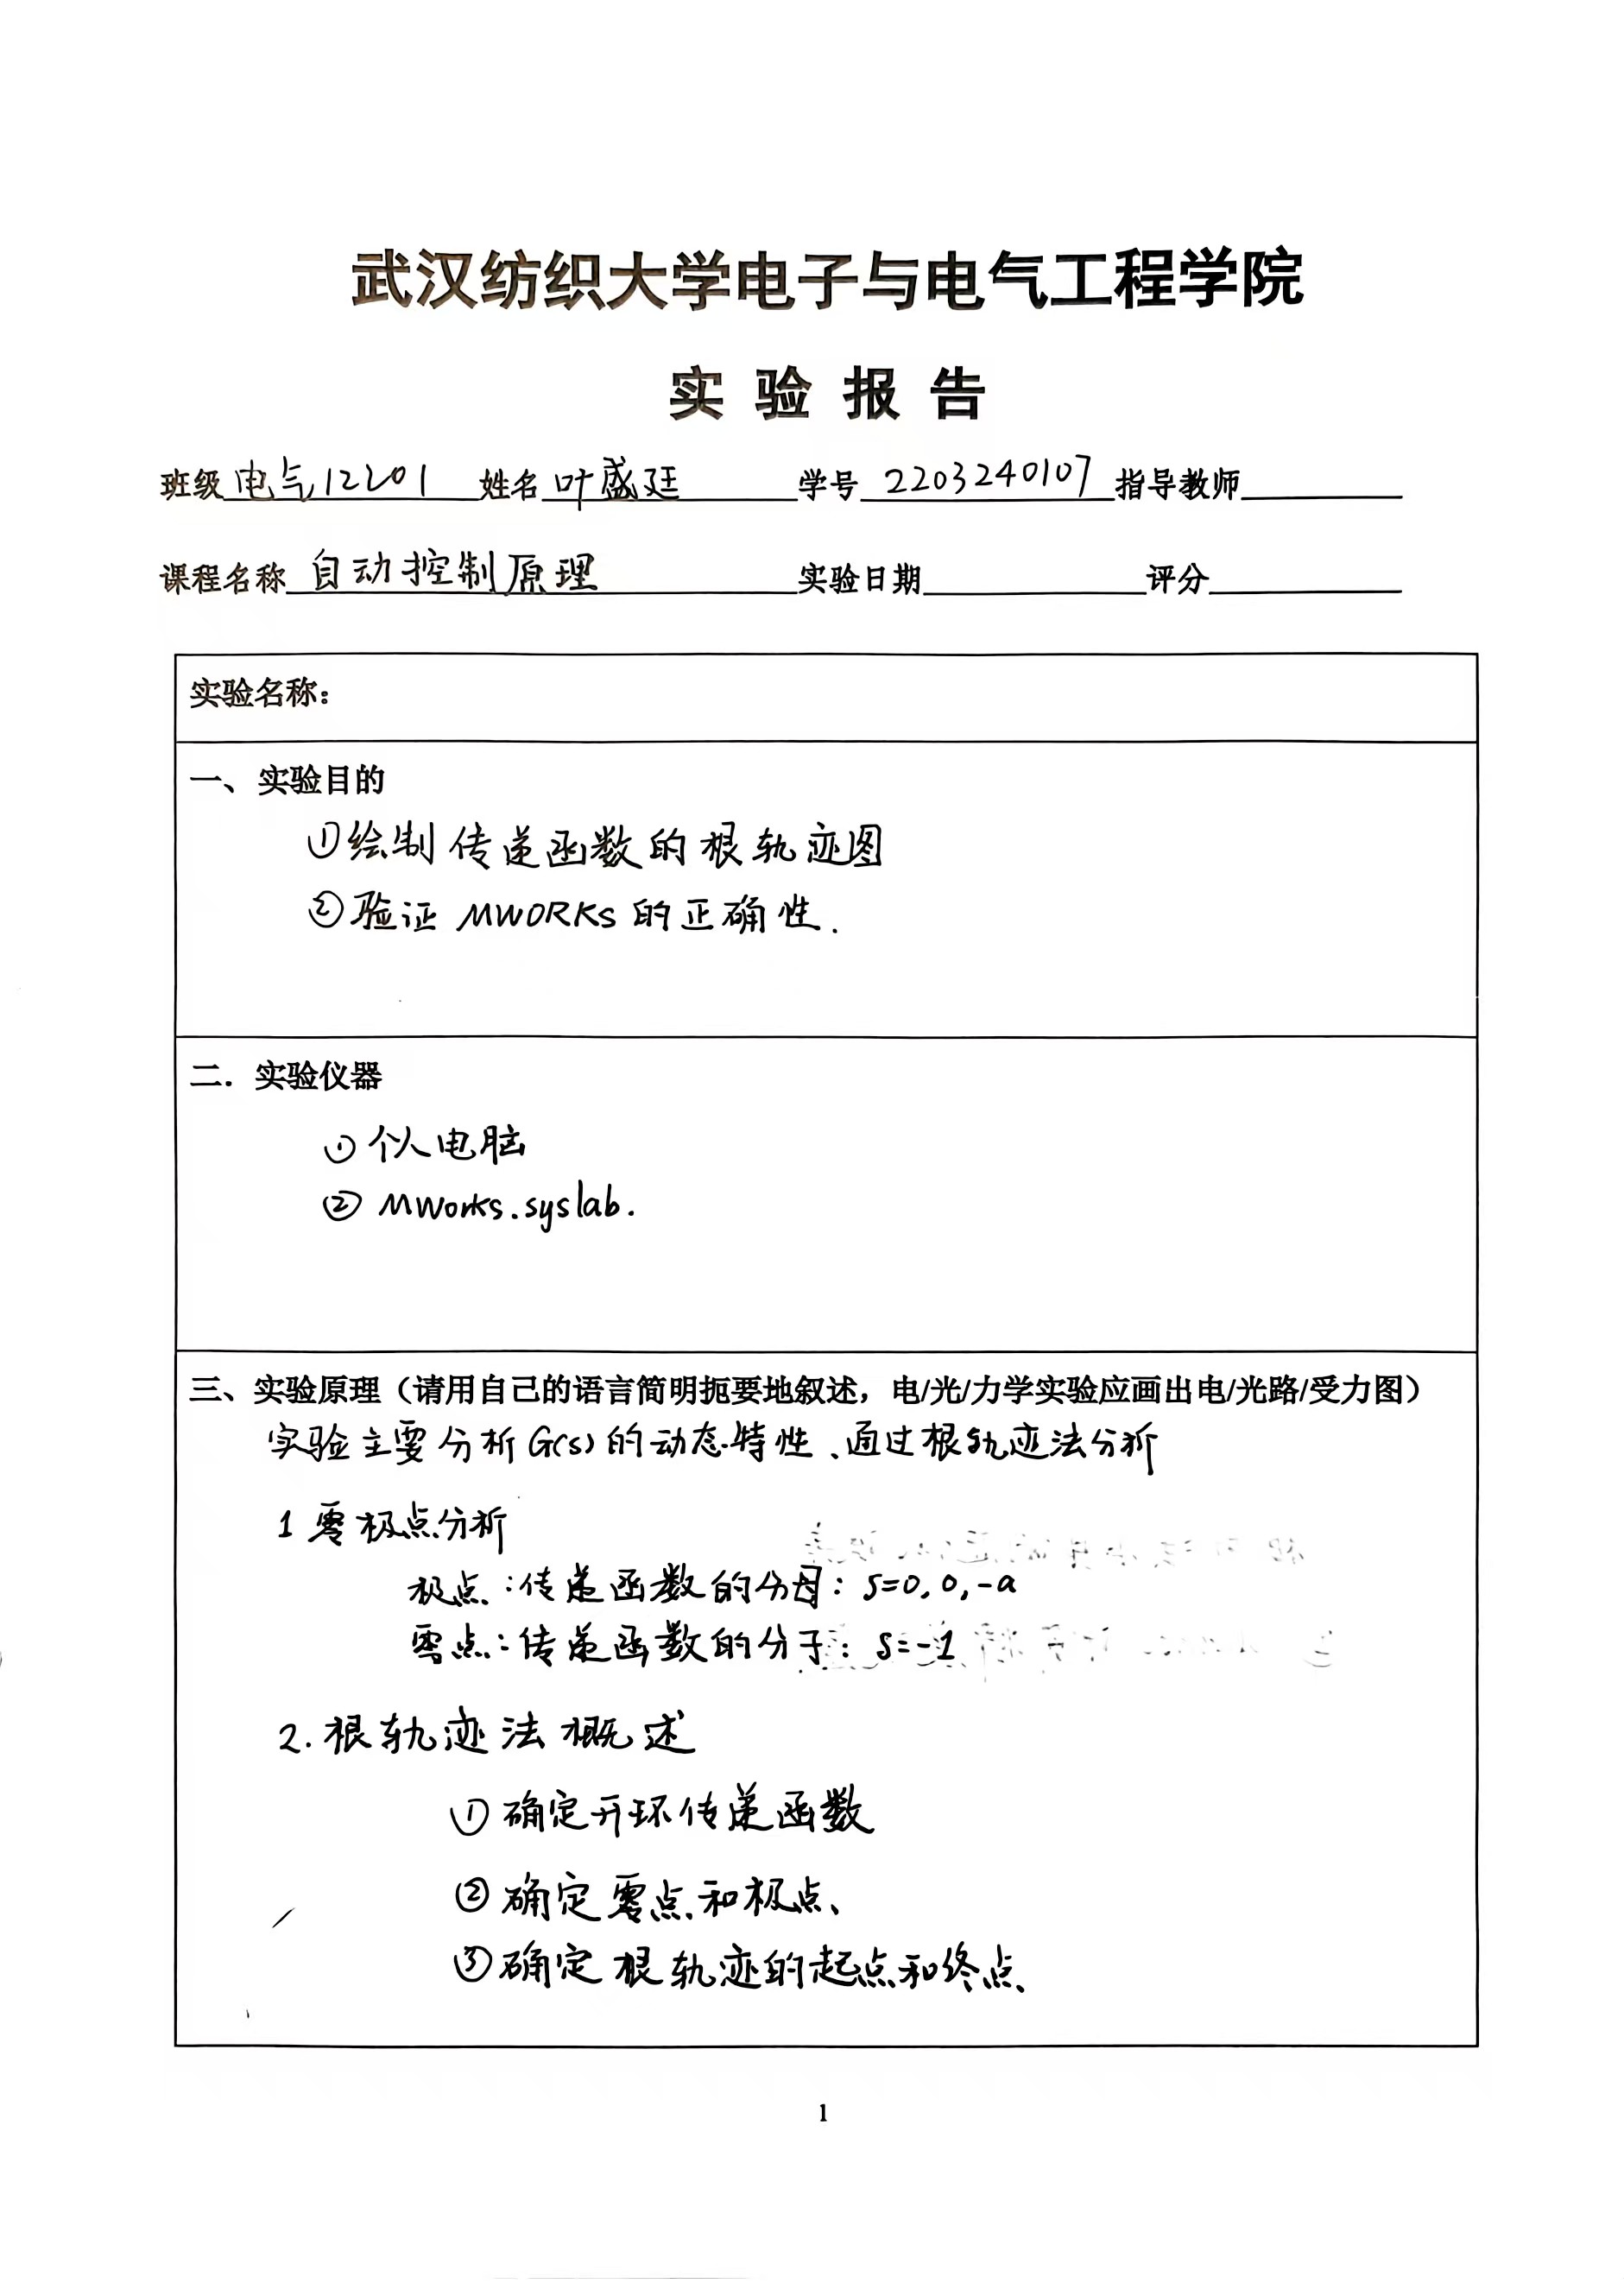 武汉纺织大学电子与电气工程学院
实验报告
班级 电气12201 姓名 叶盛廷 学号 2203240107 指导教师
课程名称 自动控制原理 实验日期 评分
实验名称：
一、实验目的
①绘制传递函数的根轨迹图
②验证 MWORKS 的正确性.
二. 实验仪器
① 个人电脑
② MWorks.syslab.
三、实验原理（请用自己的语言简明扼要地叙述，电/光/力学实验应画出电/光路/受力图）
实验主要分析G(s)的动态特性、通过根轨迹法分析
1 零极点分析
极点：传递函数的分母：s=0,0,-a
零点：传递函数的分子：s=-1
2. 根轨迹法概述
① 确定开环传递函数
② 确定零点和极点、
③ 确定根轨迹的起点和终点、
1